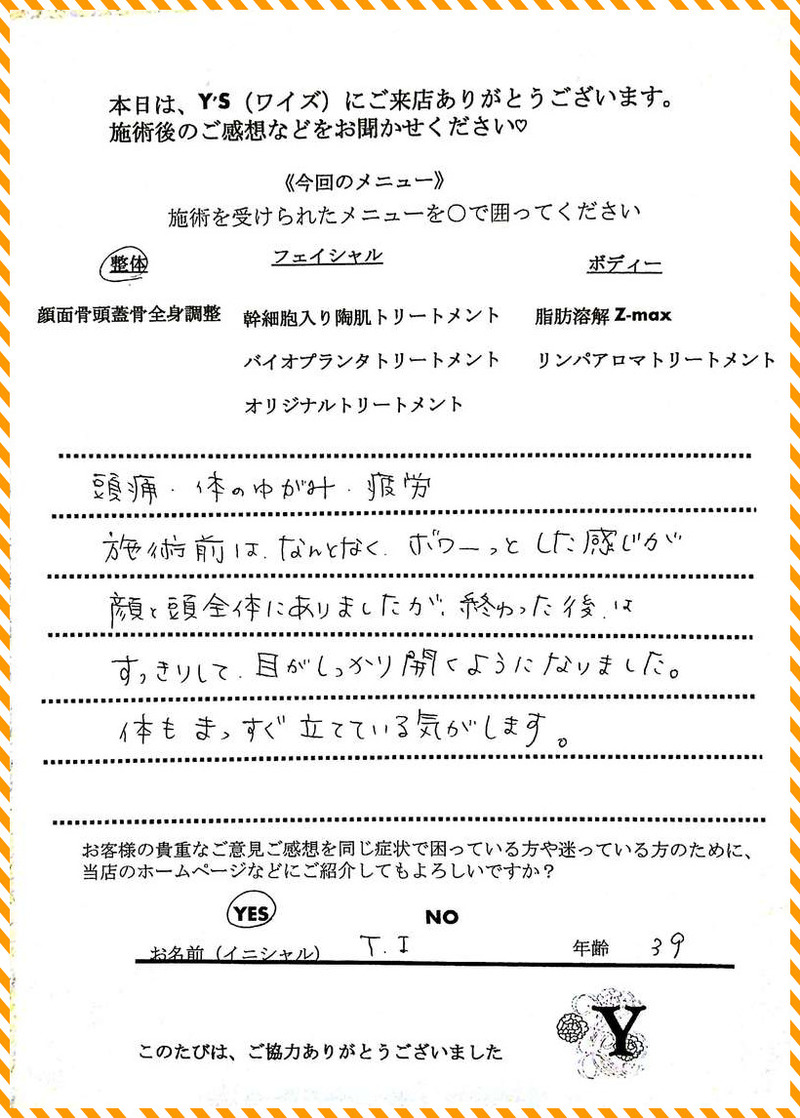 本日は、Y'S（ワイズ）にご来店ありがとうございます。
施術後のご感想などをお聞かせください♡
《今回のメニュー》
施術を受けられたメニューを〇で囲ってください
整体
フェイシャル
ボディー
顔面骨頭蓋骨全身調整
幹細胞入り陶肌トリートメント
脂肪溶解 Z-max
バイオプランタトリートメント
リンパアロマトリートメント
オリジナルトリートメント
頭痛・体のゆがみ・疲労
施術前は、なんとなく、ボワーっとした感じが
顔と頭全体にありましたが、終わった後、は
すっきりして、目がしっかり開くようになりました。
体もまっすぐ立てている気がします。
お客様の貴重なご意見ご感想を同じ症状で困っている方や迷っている方のために、
当店のホームページなどにご紹介してもよろしいですか？
YES NO
お名前（イニシャル） T.I 年齢 39
Y
このたびは、ご協力ありがとうございました